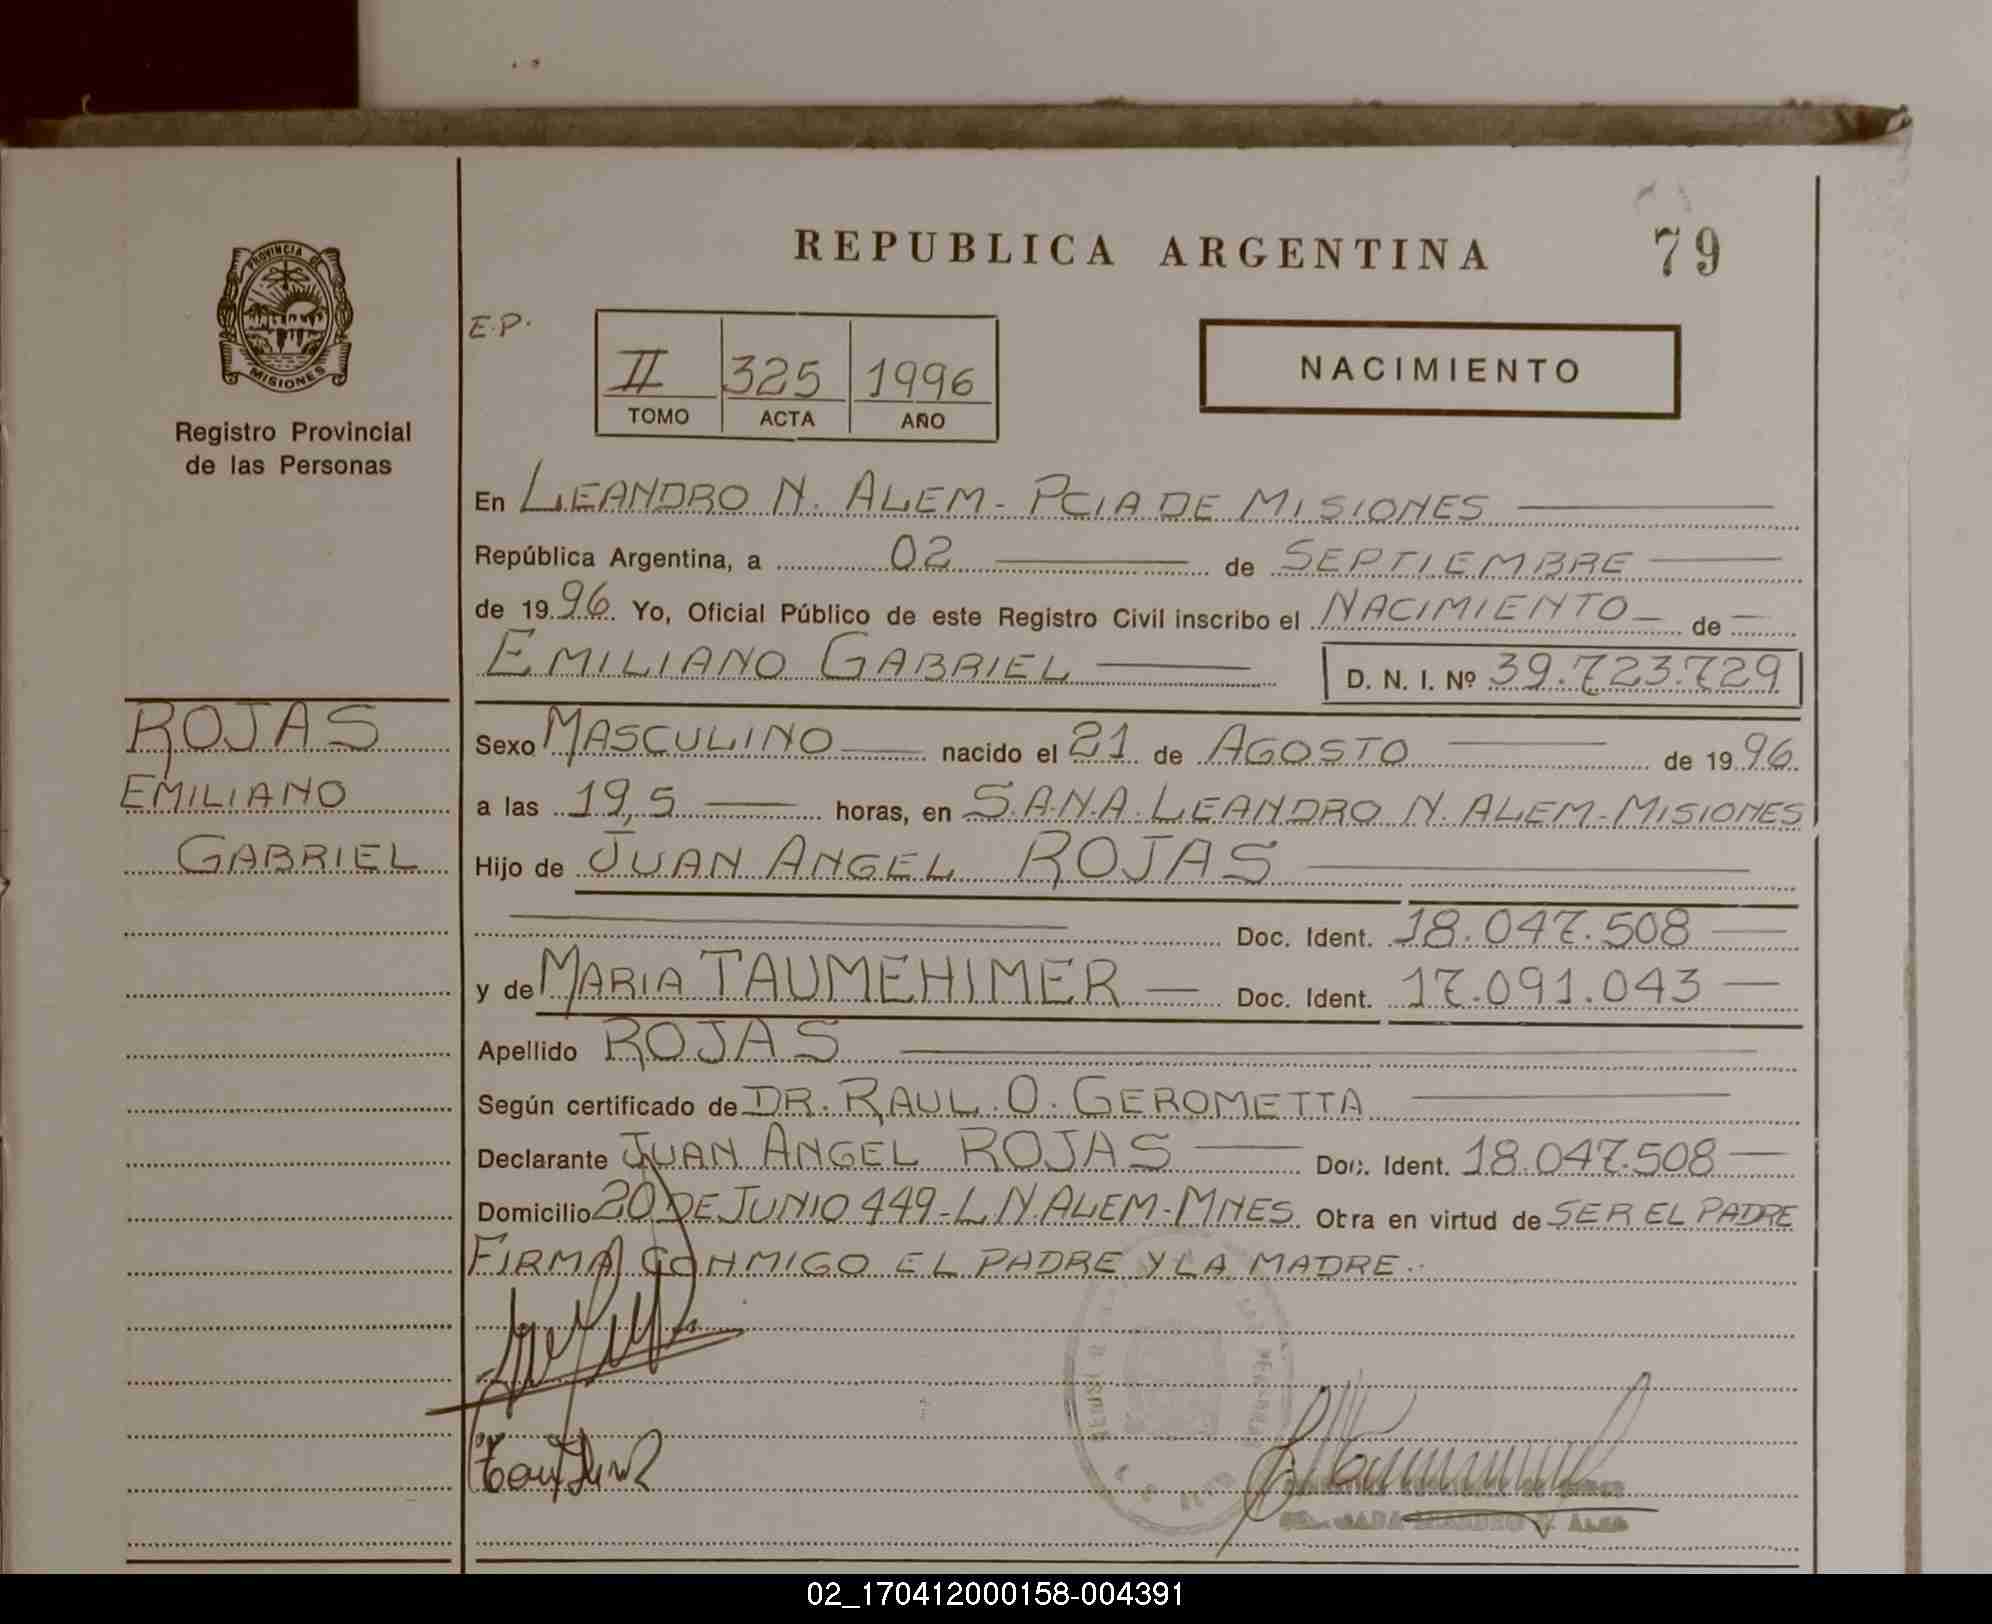 REPUBLICA ARGENTINA
79
PROVINCIA DE
MISIONES
Registro Provincial
de las Personas
E.P.
II 325 1996
TOMO ACTA AÑO
NACIMIENTO
En LEANDRO N. ALEM - PCIA DE MISIONES
República Argentina, a 02 de SEPTIEMBRE
de 1996 Yo, Oficial Público de este Registro Civil inscribo el NACIMIENTO de
EMILIANO GABRIEL D. N. I. Nº 39.723.729
ROJAS
EMILIANO
GABRIEL
Sexo MASCULINO nacido el 21 de AGOSTO de 1996
a las 19,5 horas, en S.A.N.A. LEANDRO N. ALEM - MISIONES
Hijo de JUAN ANGEL ROJAS
Doc. Ident. 18.047.508
y de MARIA TAUMEHIMER Doc. Ident. 17.091.043
Apellido ROJAS
Según certificado de DR. RAUL O. GEROMETTA
Declarante JUAN ANGEL ROJAS Doc. Ident. 18.047.508
Domicilio 20 DE JUNIO 449 - L N ALEM - MNES. Obra en virtud de SER EL PADRE
FIRMA CONMIGO EL PADRE Y LA MADRE.
02_170412000158-004391